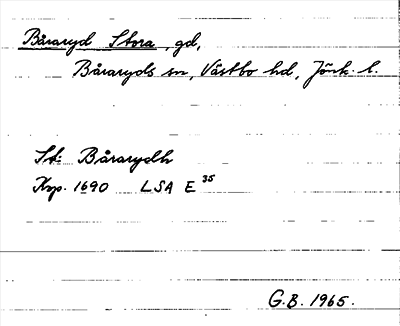 Båraryd Stora, gd,
Båraryds sn, Västbo hd, Jönk. l.
St: Bårarydh
Kop. 1690 LSA E 35
G.B. 1965.